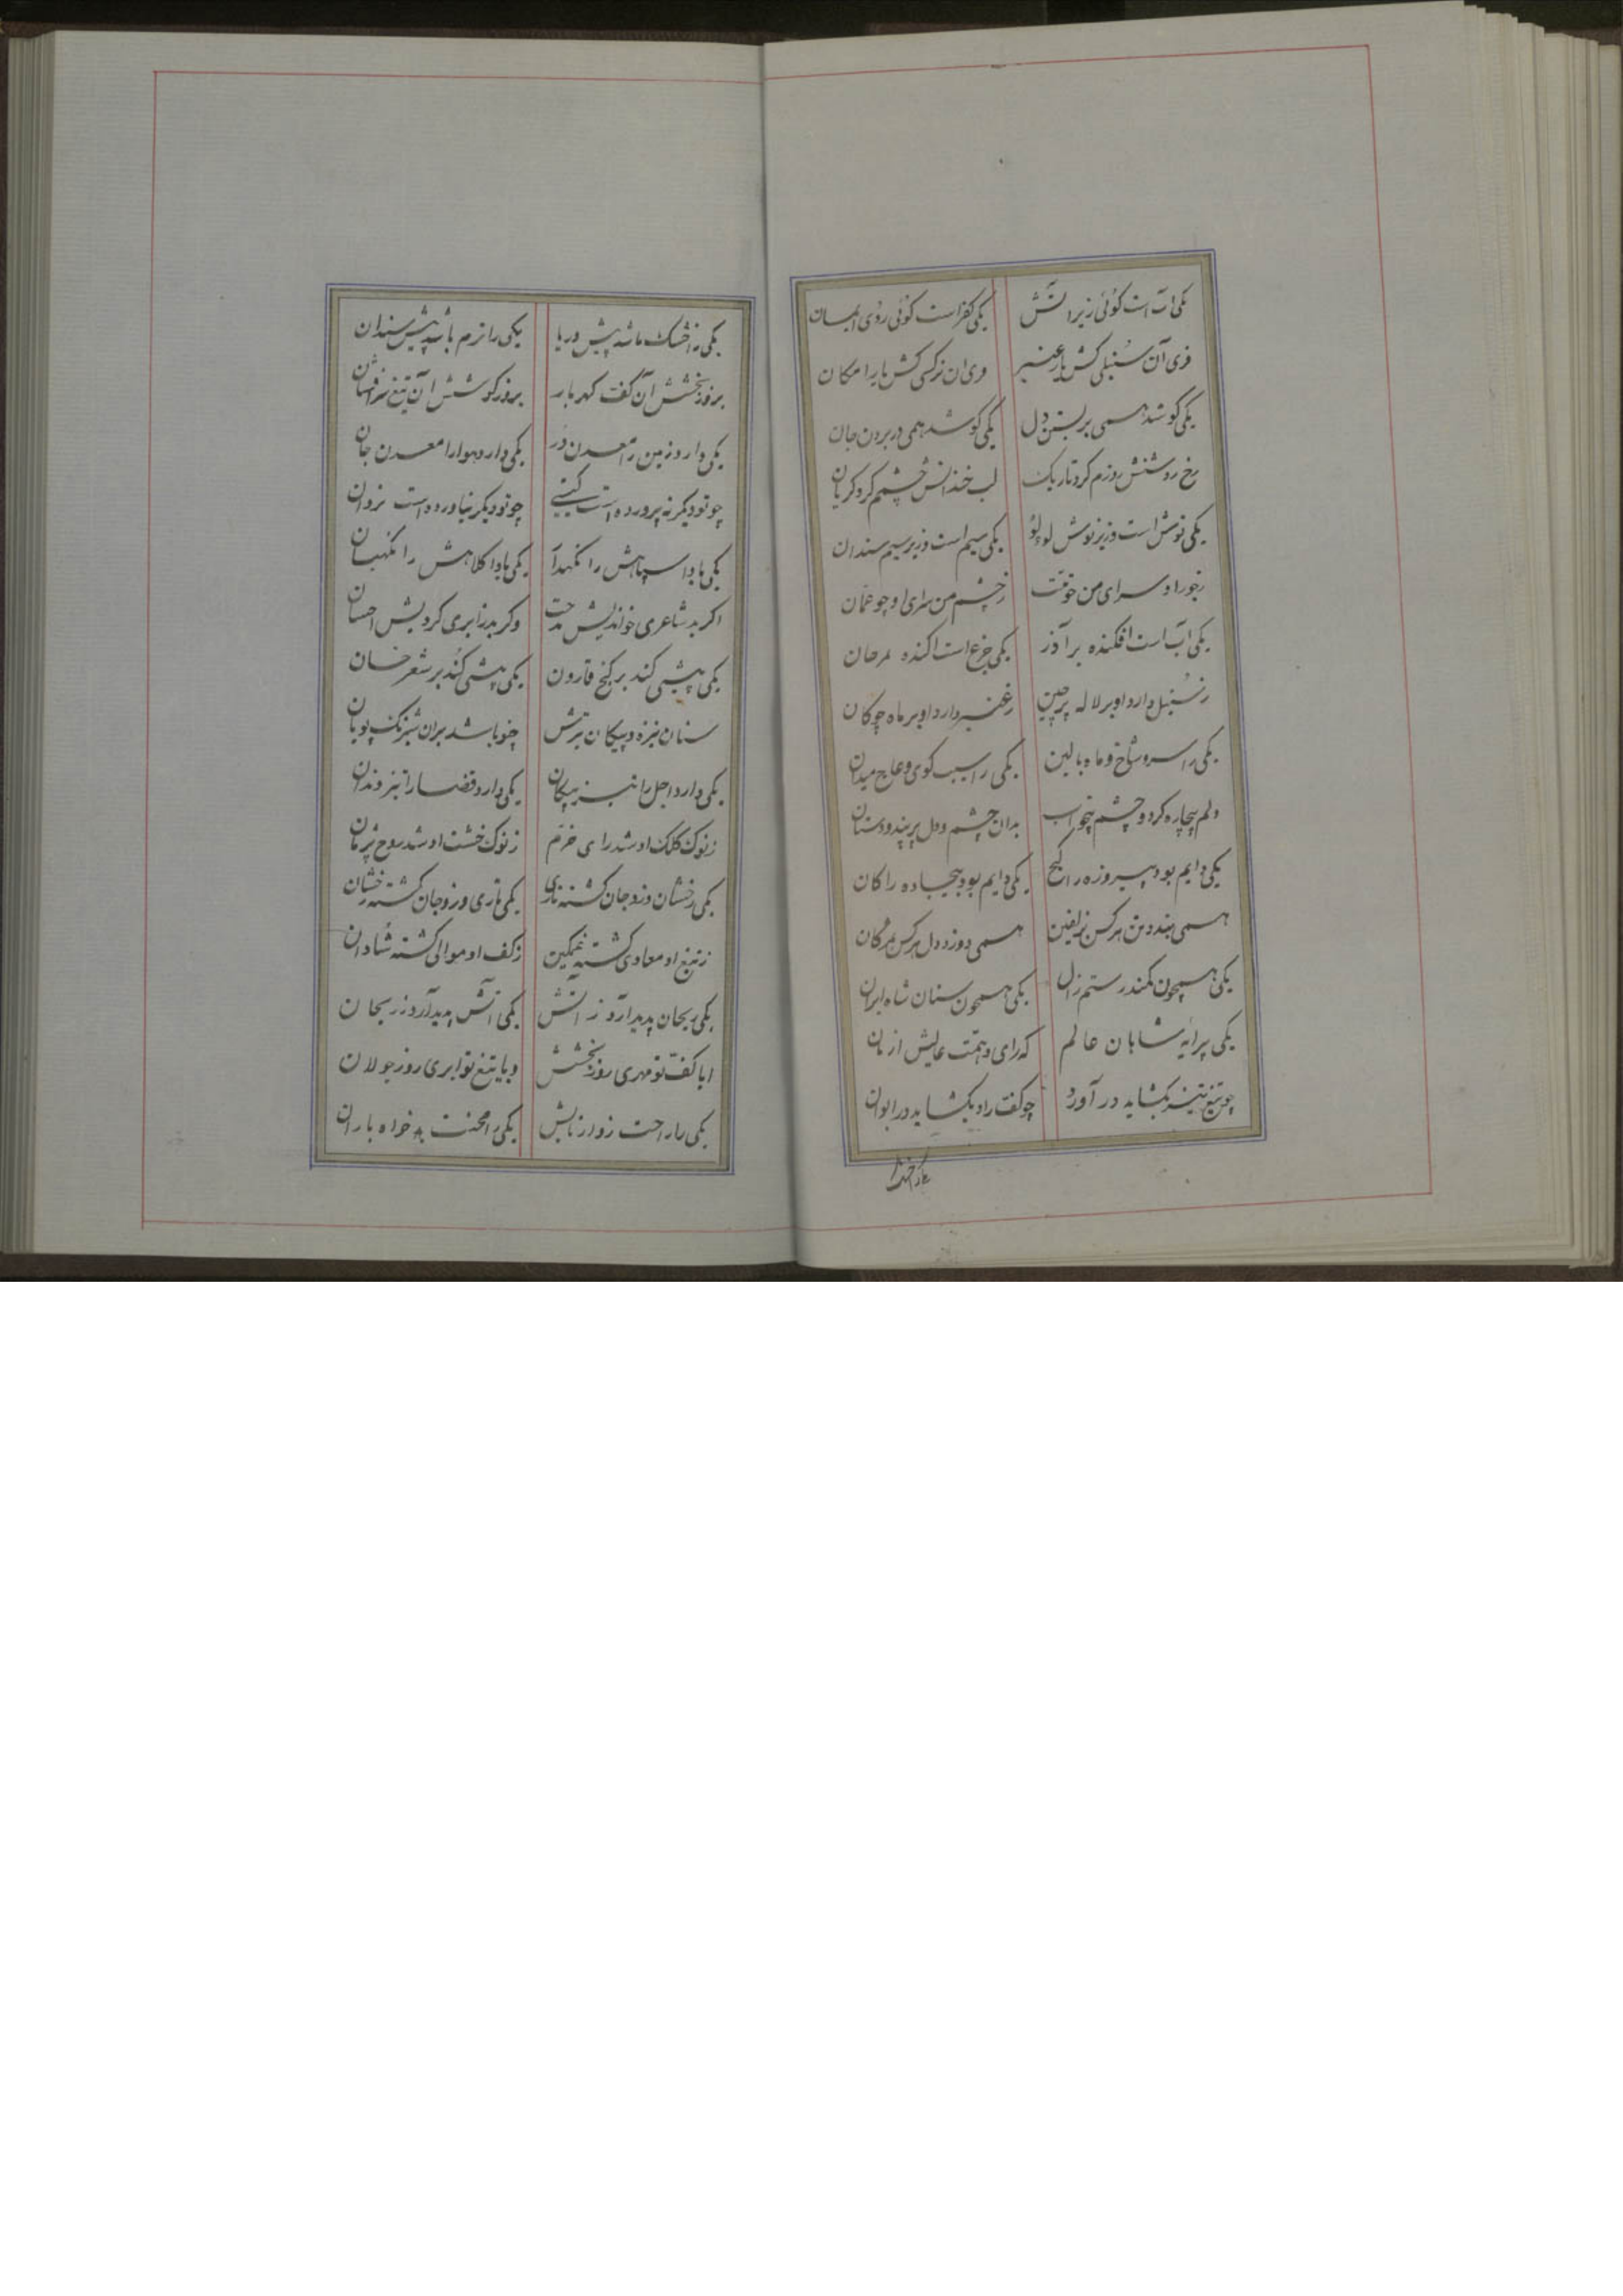 یکی آب است گوئی زیر آتش یکی کفر است گوئی روی ایمان
فری آن سنبلی کش بار عنبر وری آن نرگسی کش بار امکان
یکی کوشد همی بر بستن دل یکی کوشد همی در بردن جان
رخ روشنش روزم کرد تاریک لب خندانش چشمم کرد گریان
یکی نوش است و زیر نوش لولؤ یکی سیم است و زیر سیم سندان
ز چشم من سرای او چو عمان
یکی آب است افکنده بر آذر یکی جزع است اکنده بمرجان
ز سنبل دارد او بر لاله پرچین ز عنبر دارد او بر ماه چوگان
یکی را سرو شاخ و ماه بالین یکی را سیب گوی و عاج میدان
دلم بیچاره کرد و چشم بیخواب بدان چشم و دل پر بند و دستان
یکی دایم بود پیروزه را گنج یکی دایم بود بیجاده را کان
همی بندد تن هر کس بزلفین همی دوزد دل هر کس بمژگان
یکی همچون کمند رستم زال یکی همچون سنان شاه ایران
یکی پیرایه شاهان عالم که رای و همت عالیش از
چو تیغ تیز بگشاید در آورد چو کف راد بگشاید در ایوان
یکی را خشک باشد پیش دریا یکی را نرم باشد پیش سندان
بروز بخشش آن کف گهربار بروز کوشش آن تیغ سرافشان
یکی دارد زمین را معدن در یکی دارد هوا را معدن جان
چو تو دیگر نپرورده است گیتی چو تو دیگر نیاورده است یزدان
یکی بادا سپاهش را نگهدار یکی بادا کلاهش را نگهبان
اگر بد شاعری خواندیش مدحت وگر بد زایری کردیش احسان
یکی پیشی کند بر گنج قارون یکی پیشی کند بر شعر حسان
سنان نیزه و پیکان تیرش چو باشد بران شبرنگ پویان
یکی دارد اجل را تیز پیکان یکی دارد قضا را تیز دندان
ز نوک کلک او شد رای خرم ز نوک خشت او شد روح پژمان
یکی رخشان وزو جان گشته تاری یکی تاری وزو جان گشته رخشان
ز تیغ او معادی گشته غمگین ز کف او موالی گشته شادان
یکی ریحان پدید آرد ز آتش یکی آتش پدید آرد ز ریحان
ابا کف تو مهری روز بخشش و با تیغ تو ابری روز جولان
یکی را راحت زوار تابش یکی را محنت بدخواه باران